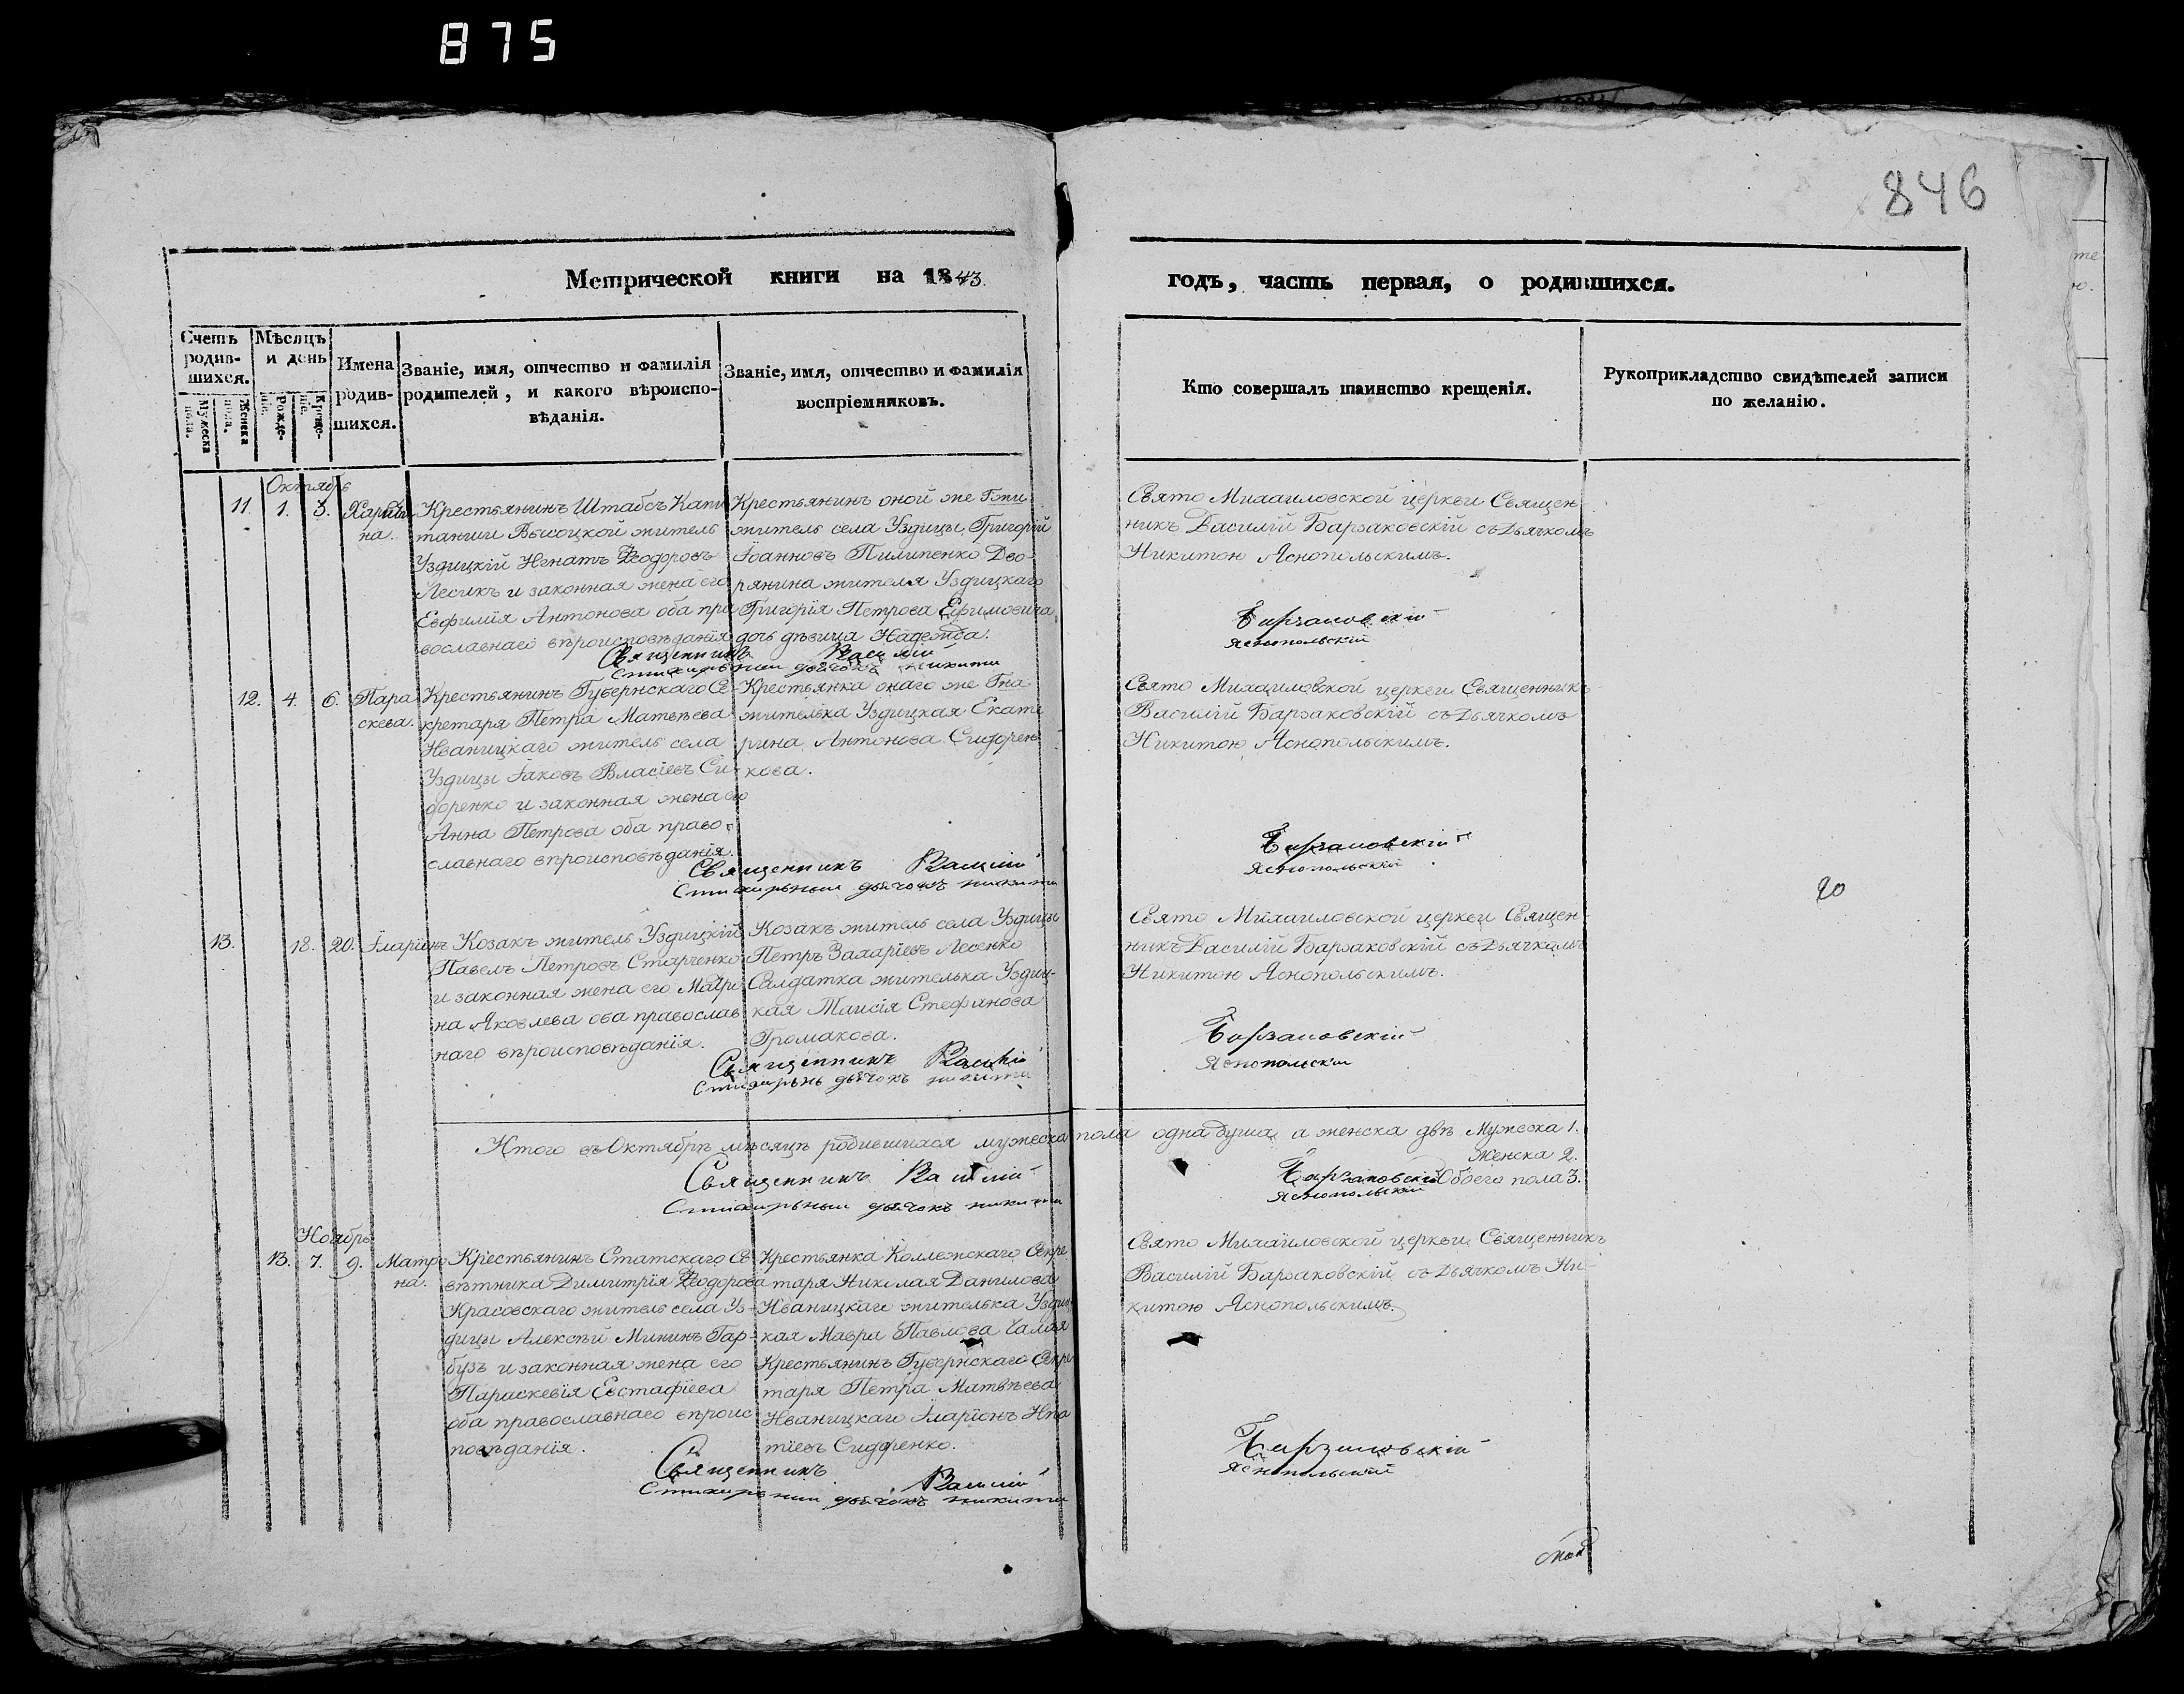 875
846
Метрической книги на 1843.
годъ, часть первая, о родившихся.
Счетъ родив- шихся.
Мужеска пола.
Женска пола.
Мѣсяцъ и день
Рожде- нія.
Креще- нія.
Имена родив- шихся.
Званіе, имя, отчество и фамилія
родителей, и какого вѣроиспо-
вѣданія.
Званіе, имя, отчество и фамилія
воспріемниковъ.
Кто совершалъ таинство крещенія.
Рукоприкладство свидѣтелей записи
по желанію.
Октябрь
11. 1. 3.
на.
Крестьянинъ Штабсъ Капи
танши Высоцкой житель
Уздицкій Игнатъ Ѳеодоровъ
Лесикъ и законная жена его
Евфимія Антонова оба пра
вославнаго вѣроисповѣданія
Крестьянинъ оной же Гжи
житель села Уздицы Григорій
Іоанновъ Пилипенко Дво-
рянина жителя Уздицкаго
Григорія Петрова Ефимовича
дочь дѣвица Надежда.
Священникъ Василій
Стихарный дьячокъ Никита
Свято Михаиловской церкви Священ-
никъ Василій Барзаковскій съ Дьячкомъ
Никитою Яснопольскимъ.
Барзаковскій
Яснопольскій
12. 4. 6. Пара
скева.
Крестьянинъ Губернскаго Се-
кретаря Петра Матвѣева
Иваницкаго житель села
Уздицы Іаковъ Власіевъ Си-
доренко и законная жена его
Анна Петрова оба право-
славнаго вѣроисповѣданія.
Крестьянка онаго же Гна
жителька Уздицкая Екате
рина Антонова Сидорен-
кова.
Священникъ Василій
Стихарный дьячокъ Никита
Свято Михаиловской церкви Священникъ
Василій Барзаковскій съ Дьячкомъ
Никитою Яснопольскимъ.
Барзаковскій
Яснопольскій
20
13. 18. 20. Іларіонъ
Козакъ житель Уздицкій
Павелъ Петровъ Старченко
и законная жена его Матро
на Яковлева оба православ
наго вѣроисповѣданія.
Козакъ житель села Уздицы
Петръ Захаріевъ Лесенко
Салдатка жителька Уздиц-
кая Таисія Стефанова
Громакова.
Священникъ Василій
Стихарнь дьячокъ Никита
Свято Михаиловской церкви Священ-
никъ Василій Барзаковскій съ Дьячкомъ
Никитою Яснопольскимъ.
Барзаковскій
Яснопольскій
Итого въ Октябрѣ мѣсяцѣ родившихся мужеска пола одна душа а женска двѣ Мужеска 1.
Женска 2.
Обоего пола 3.
Священникъ Василій Барзаковскій
Стихарный дьячокъ Никита Яснопольскій
Ноябрь
13. 7. 9. Матро
на.
Крестьянинъ Статскаго Со
вѣтника Димитрія Ѳеодорова
Красовскаго житель села Уз-
дицы Алексѣй Мининъ Гар-
бузъ и законная жена его
Параскевія Евстафіева
оба православнаго вѣроис
повѣданія.
Крестьянка Коллежскаго Секре
таря Николая Данилова
Иваницкаго жителька Уздиц
кая Мавра Павлова
Крестьянинъ Губернскаго Секре
таря Петра Матвѣева
Иваницкаго Іларіонъ Ипа
тіевъ Сидоренко.
Священникъ Василій
Стихарный дьячокъ Никита
Свято Михаиловской церкви Священникъ
Василій Барзаковскій съ Дьячкомъ Ни-
китою Яснопольскимъ.
Барзаковскій
Яснопольскій